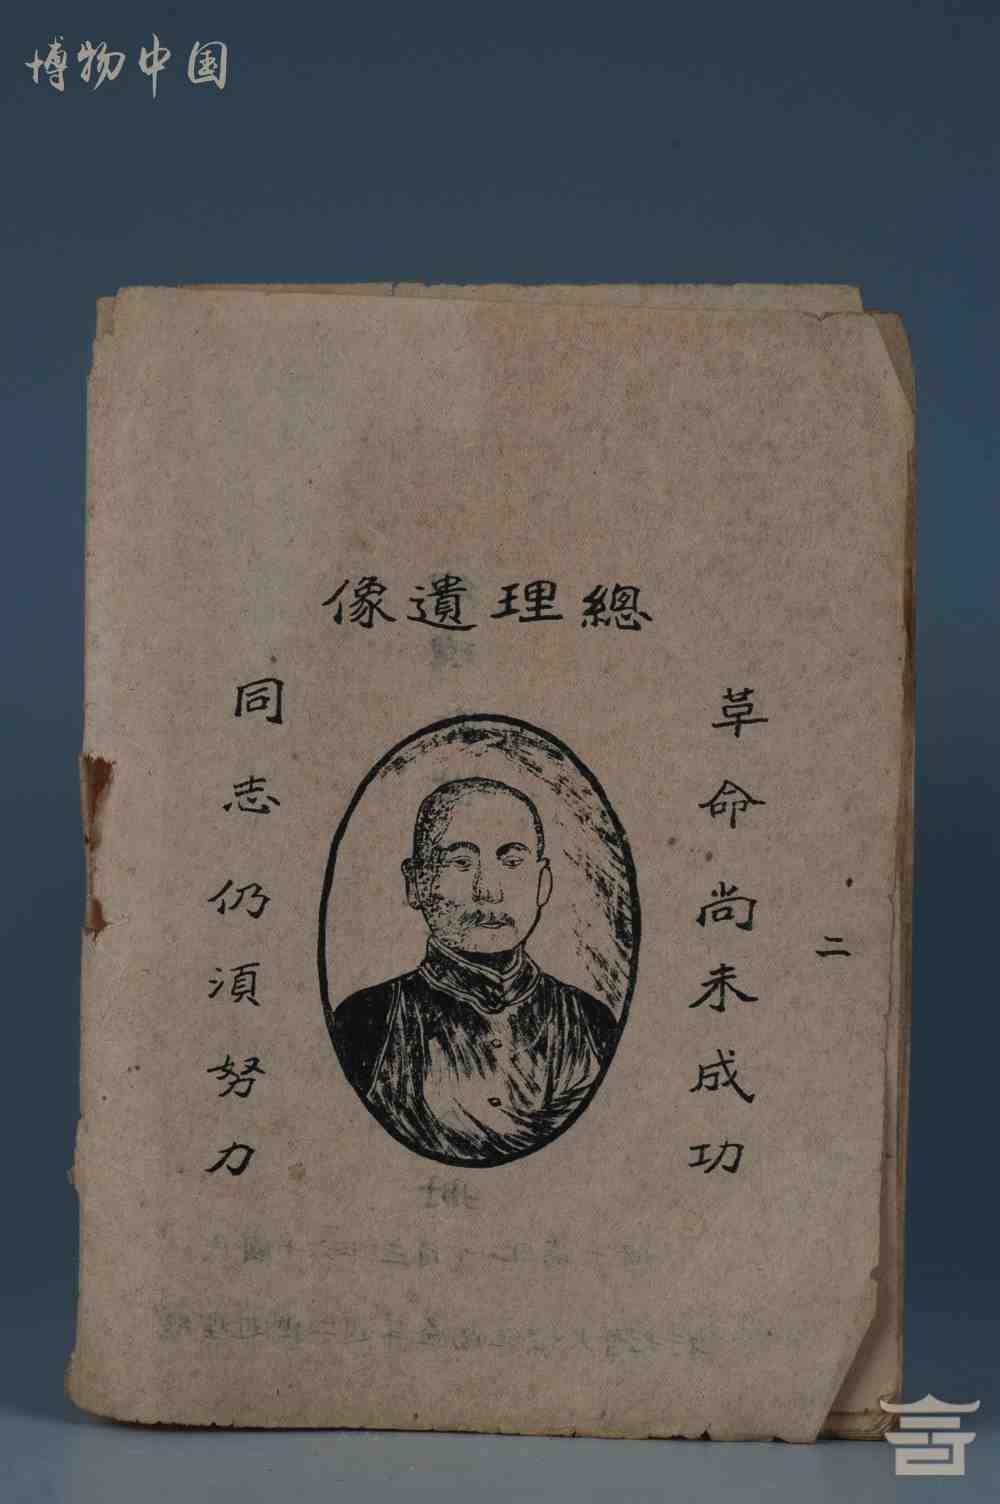 博物中国
總理遺像
革命尚未成功
同志仍須努力
二